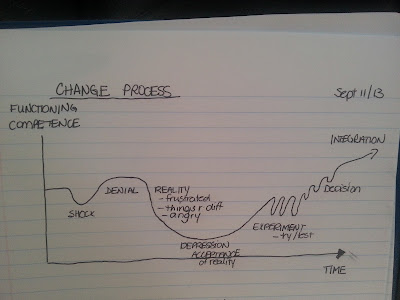 CHANGE PROCESS
Sept 11/13
FUNCTIONING
COMPETENCE
INTEGRATION
DENIAL
REALITY
- frustrated
- things r diff
- angry
Decision
SHOCK
EXPERIMENT
- try/test
DEPRESSION
ACCEPTANCE
of reality
TIME